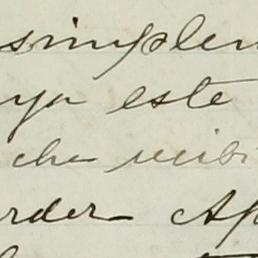 simplen
ya este
cha recibi
rder Ap